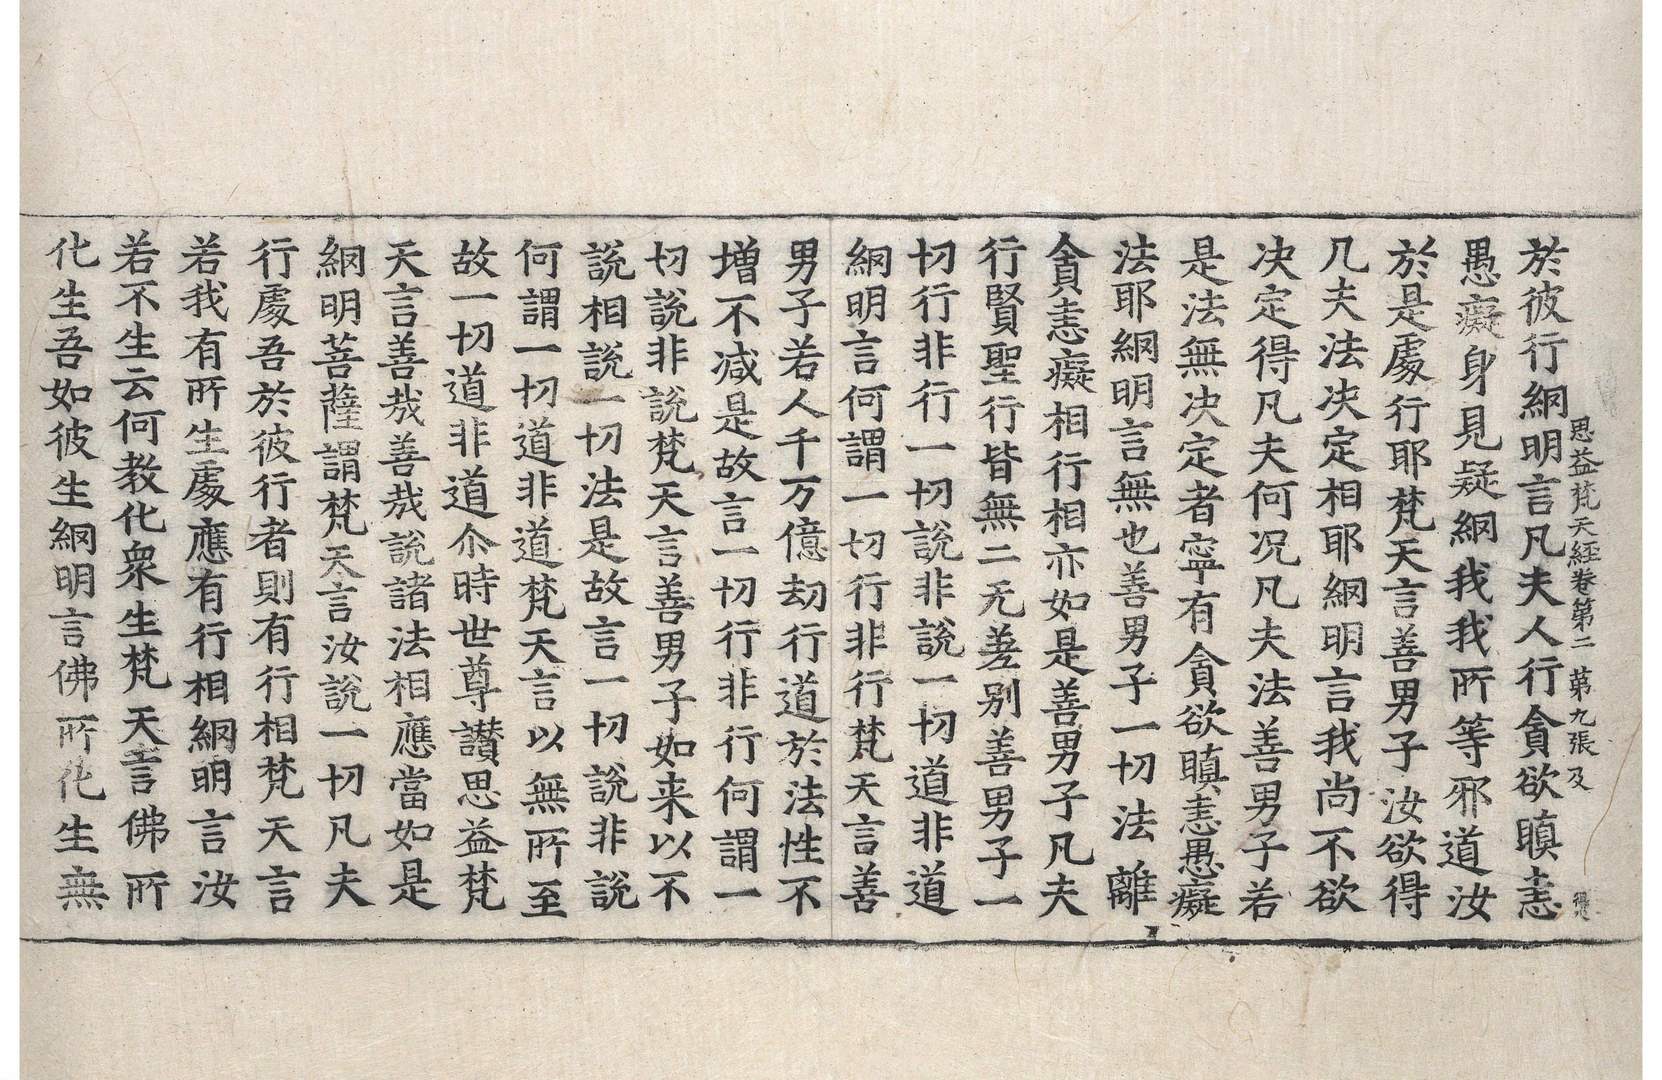 思益梵天經卷第二 第九張 及
於彼行網明言凡夫人行貪欲瞋恚
愚癡身見疑網我我所等邪道汝
於是處行耶梵天言善男子汝欲得
凡夫法决定相耶網明言我尚不欲
决定得凡夫何况凡夫法善男子若
是法無决定者寧有貪欲瞋恚愚癡
法耶網明言無也善男子一切法離
貪恚癡相行相亦如是善男子凡夫
行賢聖行皆無二无差别善男子一
切行非行一切說非說一切道非道
網明言何謂一切行非行梵天言善
男子若人千万億劫行道於法性不
增不减是故言一切行非行何謂一
切說非說梵天言善男子如来以不
說相說一切法是故言一切說非說
何謂一切道非道梵天言以無所至
故一切道非道尒時世尊讃思益梵
天言善哉善哉說諸法相應當如是
網明菩薩謂梵天言汝說一切凡夫
行處吾於彼行者則有行相梵天言
若我有所生處應有行相網明言汝
若不生云何教化衆生梵天言佛所
化生吾如彼生網明言佛所化生無